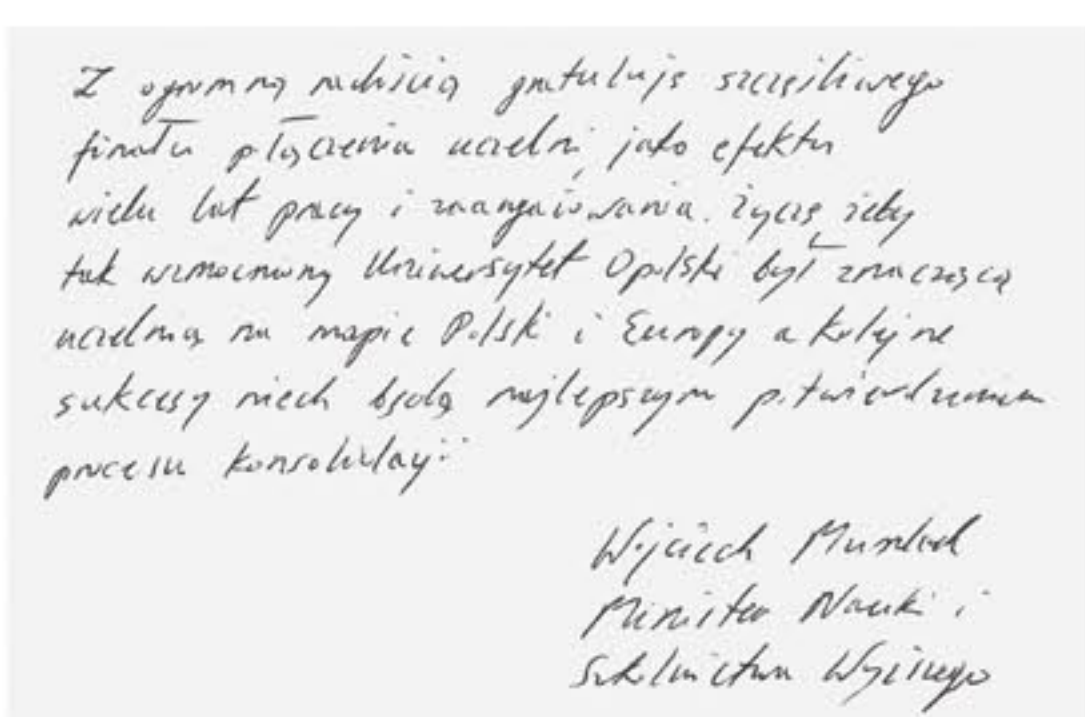 Z ogromną radością gratuluję szczęśliwego
finału płączenia uczelni, jako efektu
wielu lat pracy i zaangażowania. Życzę żeby
tak wzmocniony Uniwersytet Opolski był znaczącą
uczelnią na mapie Polski i Europy a kolejne
sukcesy niech będą najlepszym potwierdzeniem
procesu konsolidacji
Wojciech Murdzek
Minister Nauki i
Szkolnictwa Wyższego